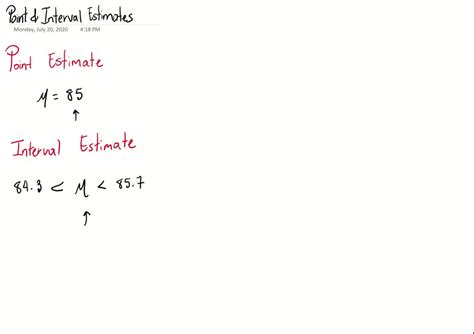 Point & Interval Estimates
Monday, July 20, 2020 4:18 PM
Point Estimate
μ = 85
↑
Interval Estimate
84.3 < μ < 85.7
↑